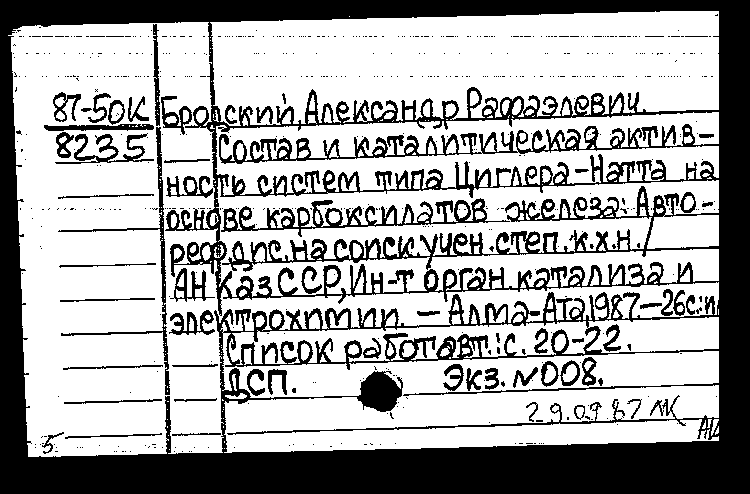 87-50К Бродский, Александр Рафаэлевич.
8235 Состав и каталитическая актив-
ность систем типа Циглера-Натта на
основе карбоксилатов железа: Авто-
реф.дис.на соиск.учен.степ.к.х.н./
АН КазССР, Ин-т орган.катализа и
электрохимии. — Алма-Ата, 1987.—26с.:и
Список работ авт.: с. 20-22.
ДСП. Экз. №008.
29.09 87
5